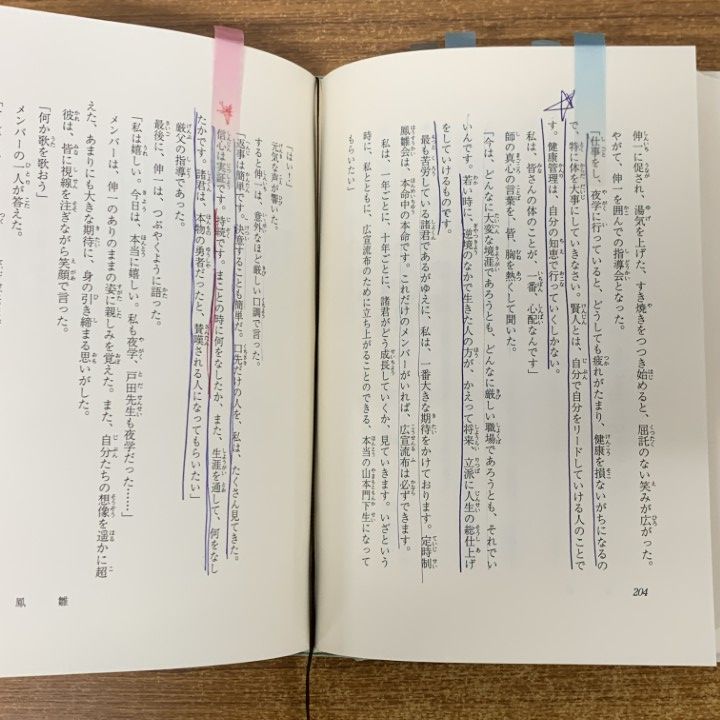 伸一に促され、湯気を上げた、すき焼きをつつき始めると、屈託のない笑みが広がった。
やがて、伸一を囲んでの指導会となった。
「仕事をし、夜学に行っていると、どうしても疲れがたまり、健康を損ないがちになるの
で、特に体を大事にしていきなさい。賢人とは、自分で自分をリードしていける人のことで
す。健康管理は、自分の知恵で行っていくしかない。
私は、皆さんの体のことが、一番、心配なんです」
師の真心の言葉を、皆、胸を熱くして聞いた。
「今は、どんなに大変な境涯であろうとも、どんなに厳しい職場であろうとも、それでい
いんです。若い時に、逆境のなかで生きた人の方が、かえって将来、立派に人生の総仕上げ
をしていけるものです。
最も苦労している諸君であるがゆえに、私は、一番大きな期待をかけております。定時制
鳳雛会は、本命中の本命です。これだけのメンバーがいれば、広宣流布は必ずできます。
私は、一年ごとに、十年ごとに、諸君がどう成長していくか、見ていきます。いざという
時に、私とともに、広宣流布のために立ち上がることのできる、本当の山本門下生になって
もらいたい」
204
「はい！」
元気な声が響いた。
すると伸一は、意外なほど厳しい口調で言った。
「返事は簡単です。決意することも簡単だ。口先だけの人を、私は、たくさん見てきた。
信心は実証です。持続です。まことの時に何をなしたか、また、生涯を通して、何をなし
たかです。諸君は、本物の勇者だったと、賛嘆される人になってもらいたい」
厳父の指導であった。
最後に、伸一は、つぶやくように語った。
「私は嬉しい。今日は、本当に嬉しい。私も夜学、戸田先生も夜学だった……」
メンバーは、伸一のありのままの姿に親しみを覚えた。また、自分たちの想像を遥かに超
えた、あまりにも大きな期待に、身の引き締まる思いがした。
彼は、皆に視線を注ぎながら笑顔で言った。
「何か歌を歌おう」
メンバーの一人が答えた。
鳳雛